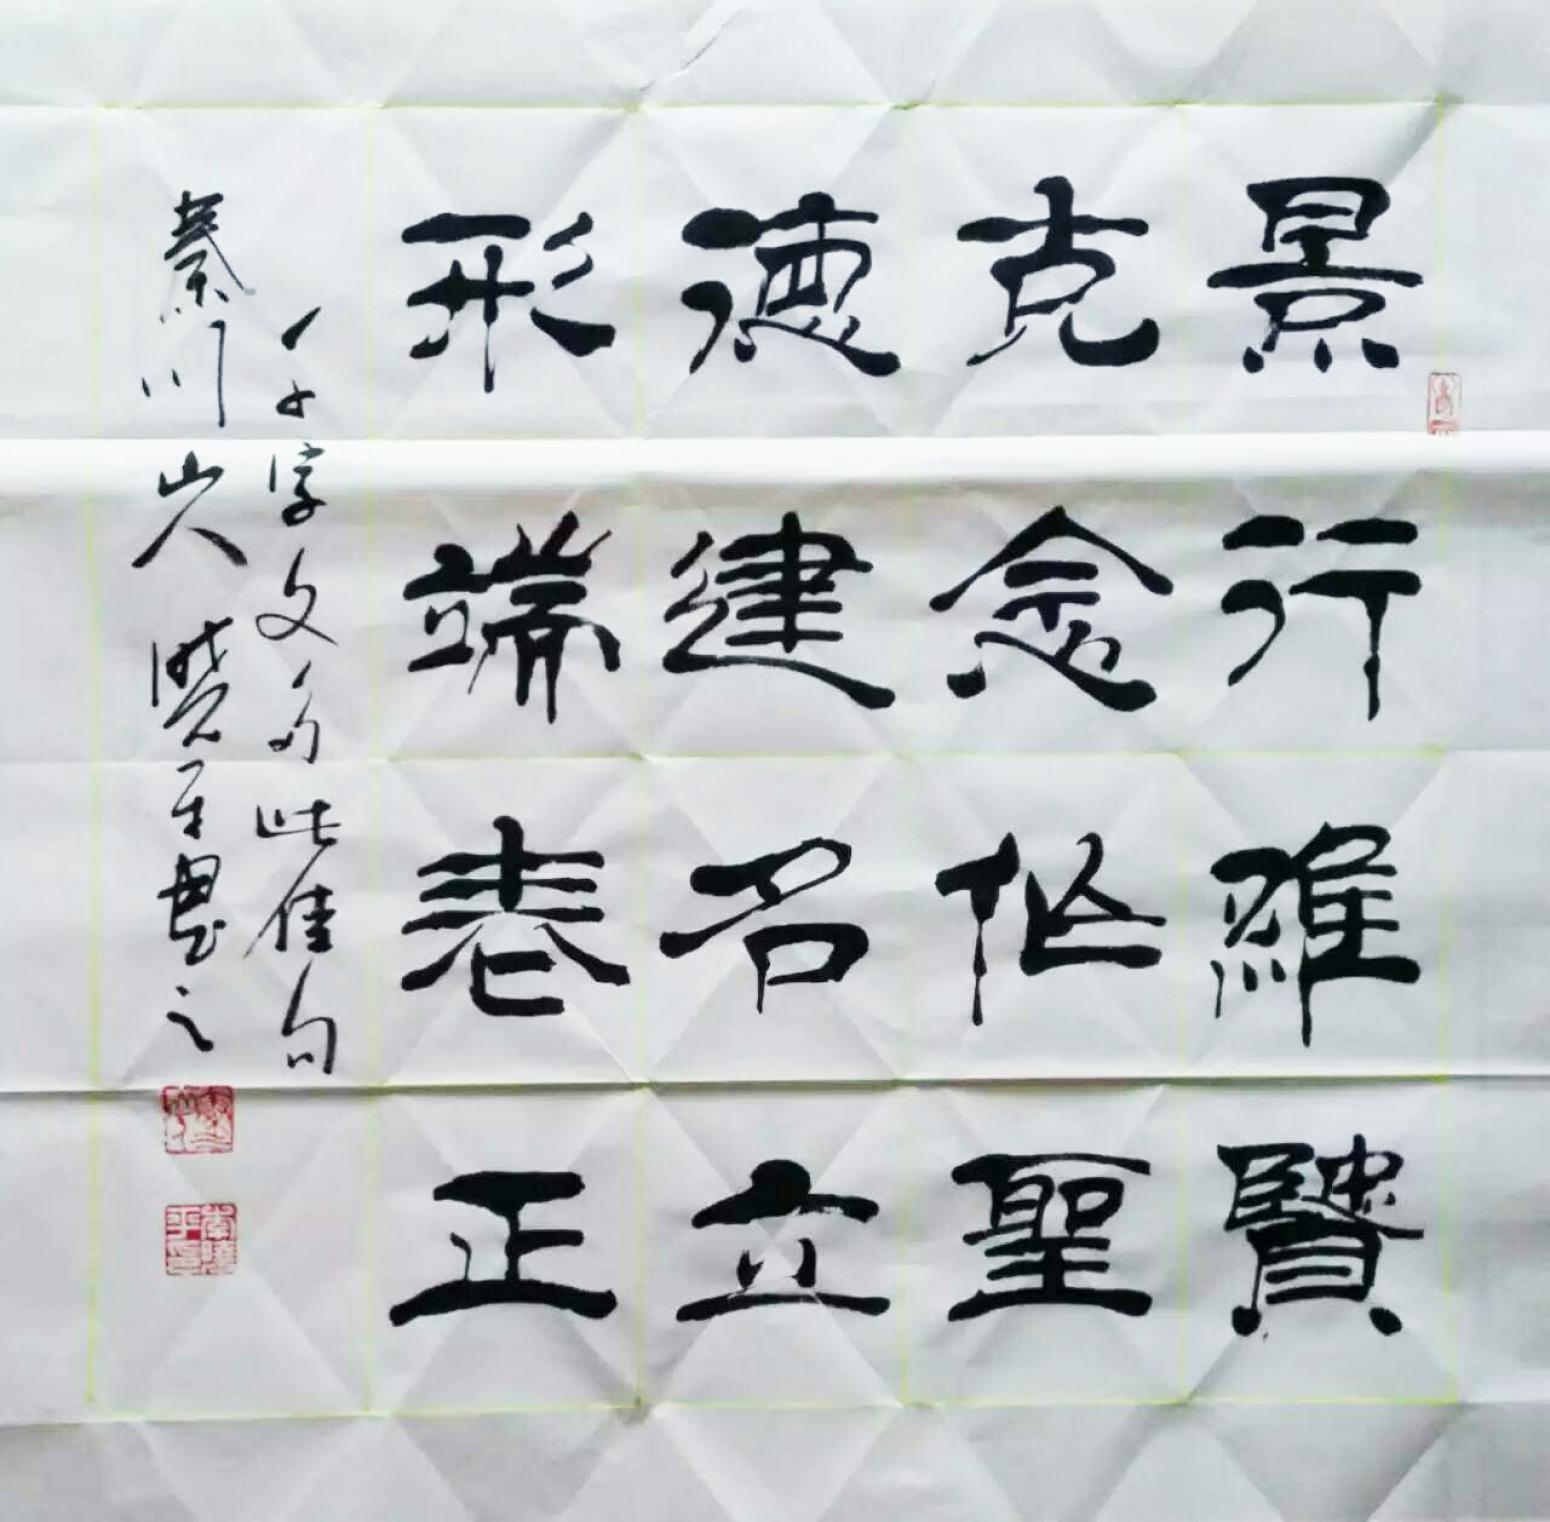 景行維賢
克念作聖
德建名立
形端表正
千字文多此佳句
秦川山人曉平書之